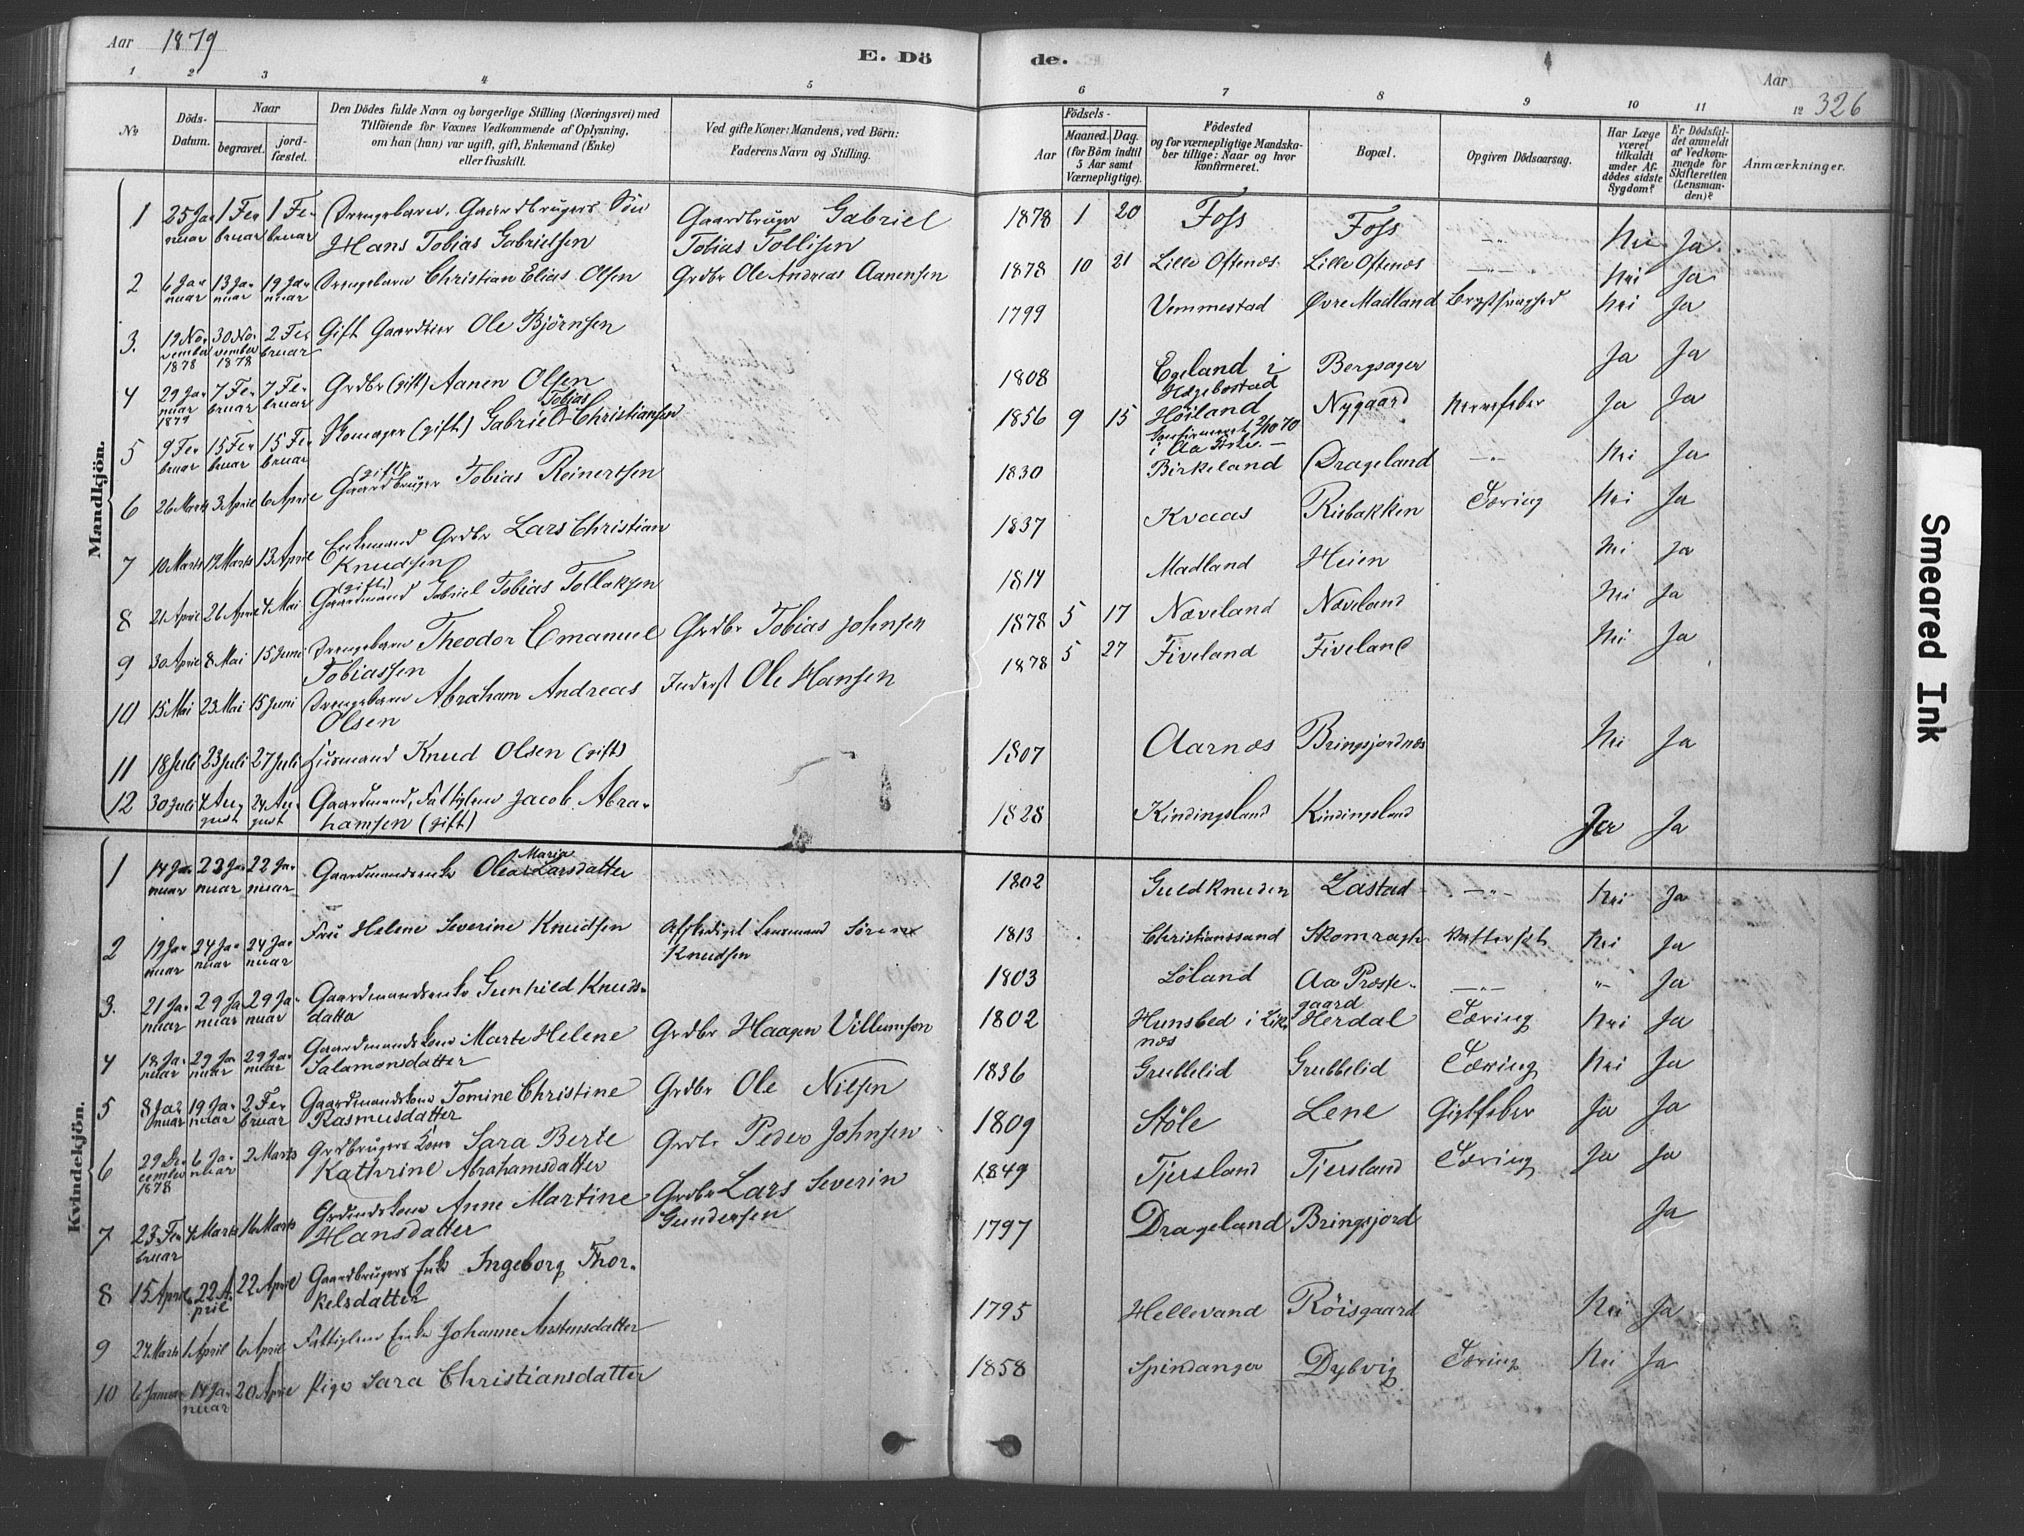 Aar 1879
E. Dö
de.
Aar
326
1 2 3 4 5 6 7 8 9 10 11 12
No
Döds-Datum.
Naar
begravet.
jord-fæstet.
Den Dödes fulde Navn og borgerlige Stilling (Næringsvei) med
Tilföiende for Voxnes Vedkommende af Oplysning,
om han (hun) var ugift, gift, Enkemand (Enke)
eller fraskilt.
Ved gifte Koner: Mandens, ved Börn:
Faderens Navn og Stilling.
Födsels-
Aar
Maaned. Dag.
(for Börn indtil
5 Aar samt
Værnepligtige).
Födested
og for værnepligtige Mandska-
ber tillige: Naar og hvor
konfirmeret.
Bopæl.
Opgiven Dödsaarsag.
Har Læge
været
tilkaldt
under Af-
dödes sidste
Sygdom?
Er Dödsfal-
det anmeldt
af Vedkom-
mende for
Skifteretten
(Lensman-
den)?
Anmærkninger.
Mandkjön.
1 25 Januar 1 Februar 1 Februar Drengebarn, Gaardbrugers Søn Gaardbruger Gabriel 1878 1 20 Foss Foss -"- Nei Ja
Hans Tobias Gabrielsen Tobias Tollisen
2 6 Januar 13 Januar 19 Januar Drengebarn Christian Elias Olsen Grdbr Ole Andreas Aanensen 1878 10 21 Lille Oftenæs Lille Oftenæs -"- Nei Ja
3. 19 November 1878 30 November 1878 2 Februar Gift Gaardbrr Ole Bjørnsen 1799 Vemmestad Øvre Madland Brystsvaghed Nei Ja
4 29 Januar 1879 7 Februar 7 Februar Grdbr (gift) Aanen Olsen 1808 Egeland i Bergsager Ja Ja
Hægebostad
5 9 Februar 15 Februar 15 Februar Skomager (gift) Gabriel Tobias Christiansen 1856 9 15 Høiland Nygaard Nervefeber Ja Ja
Confirmeret 2/10 70
i Aa Kirke. -
6 26 Marts 3 April 6 April (gift) Gaardbruger Tobias Reinertsen 1830 Birkeland Drageland -"- Nei Ja
7 10 Marts 19 Marts 13 April Enkemand Grdbr Lars Christian 1837 Kvaas Risbakken Tæring Nei Ja
Knudsen
8 21 April 26 April 4 Mai (gift) Gaardmand Gabriel Tobias Tollaksen 1814 Madland Heien Nei Ja
9 30 April 8 Mai 15 Juni Drengebarn Theodor Emanuel Grdbr Tobias Johnsen 1878 5 17 Næveland Næveland Nei Ja
Tobiassen
10 15 Mai 23 Mai 15 Juni Drengebarn Abraham Andreas Inderst Ole Hansen 1878 5 27 Fiveland Fiveland Nei Ja
Olsen
11 18 Juli 23 Juli 27 Juli Husmand Knud Olsen (gift) 1807 Aarnæs Bringsjordnæs Nei Ja
12 30 Juli 4 August 24 August Gaardmand, Fattiglem Jacob Abra- 1828 Kindingsland Kindingsland Ja Ja
hamsen (gift)
Kvindekjön.
1 14 Januar 22 Januar 22 Januar Gaardmandsenke Olea Maria Larsdatter 1802 Guldknuden Lastad -"- Nei Ja
2 19 Januar 24 Januar 24 Januar Fru Helene Severine Knudsen Afskediget Lensmand Søren 1813 Christianssand Skomragh Vattersot Nei Ja
Knudsen
3. 21 Januar 29 Januar 29 Januar Gaardmandsenke Gunhild Knuds- 1803 Løland Aa Præste- -"- " Ja
datter gaard
4 18 Januar 29 Januar 29 Januar Gaardmandskone Marte Helene Grdbr Haagen Villumsen 1802 Hunsbed i Lik- Herdal Tæring Nei Ja
Salamonsdatter næs
5 8 Januar 19 Januar 2 Februar Gaardmandskone Tomine Christine Grdbr Ole Nilsen 1836 Grubbelid Grubbelid Tæring Nei Ja
Rasmusdatter
6 29 December 1878 6 Januar 2 Marts Grdbrugers Kone Sara Berte Grdbr Peder Johnsen 1809 Støle Lene Gigtfeber Ja Ja
Kathrine Abrahamsdatter
7 23 Februar 4 Marts 16 Marts Grdmdskone Anne Martine Grdbr Lars Severin 1849 Tjersland Tjersland Tæring Ja Ja
Hansdatter Gundersen
8 15 April 22 April 22 April Gaardbrugers Enke Ingeborg Thor- 1797 Drageland Bringsjord Ja
kelsdatter
9 27 Marts 1 April 6 April Fattiglem Enke Johanne Austensdatter 1795 Hellevand Røisgaard Nei Ja
10 6 Januar 14 Januar 20 April Pige Sara Christiansdatter 1858 Spindanger Dybvig Tæring Nei Ja
Smeared Ink